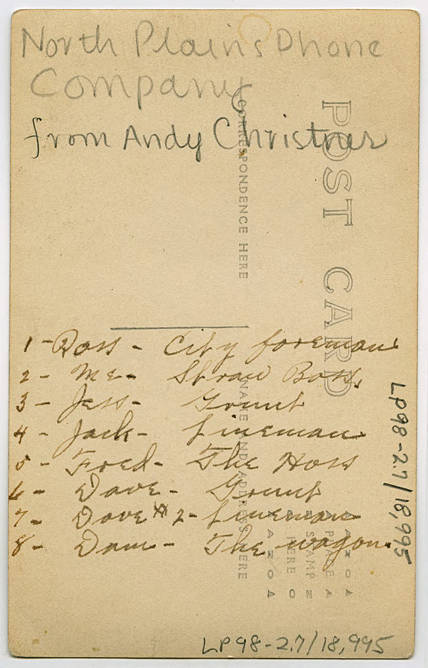 North Plains Phone
Company
from Andy Christner
POST CARD
CORRESPONDENCE HERE
NAME AND ADDRESS HERE
AZO
PLACE
STAMP
HERE
AZO
1 - Ross - City foreman
2 - Me - Straw Boss.
3 - Jess - Grunt
4 - Jack - Lineman
5 - Fred - The Hoss
6 - Dave - Grunt
7 - Dave #2 - Lineman
8 - Dam - The wagon.
LP98-2.7/18,995
LP98-2.7/18,995